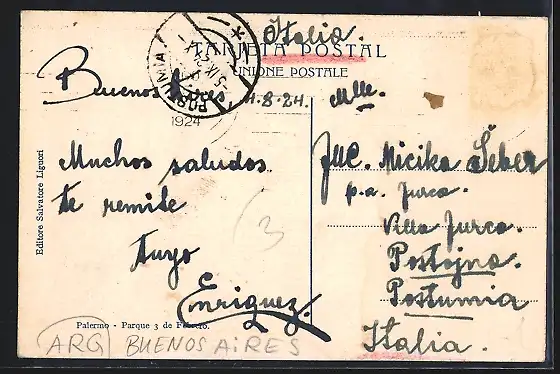 Italia.
TARJETA POSTAL
UNIONE POSTALE
POSTUMIA
1924
Buenos Aires 4.8.24.
Muchos saludos
te remite
tuyo
Enriquez.
Mlle.
Mlle. Micika Šeber
p.a. Jurca.
Villa Jurca.
Postojna.
Postumia
Italia.
3
Editore Salvatore Liguori
Palermo - Parque 3 de Febrero.
ARG BUENOS AiRES